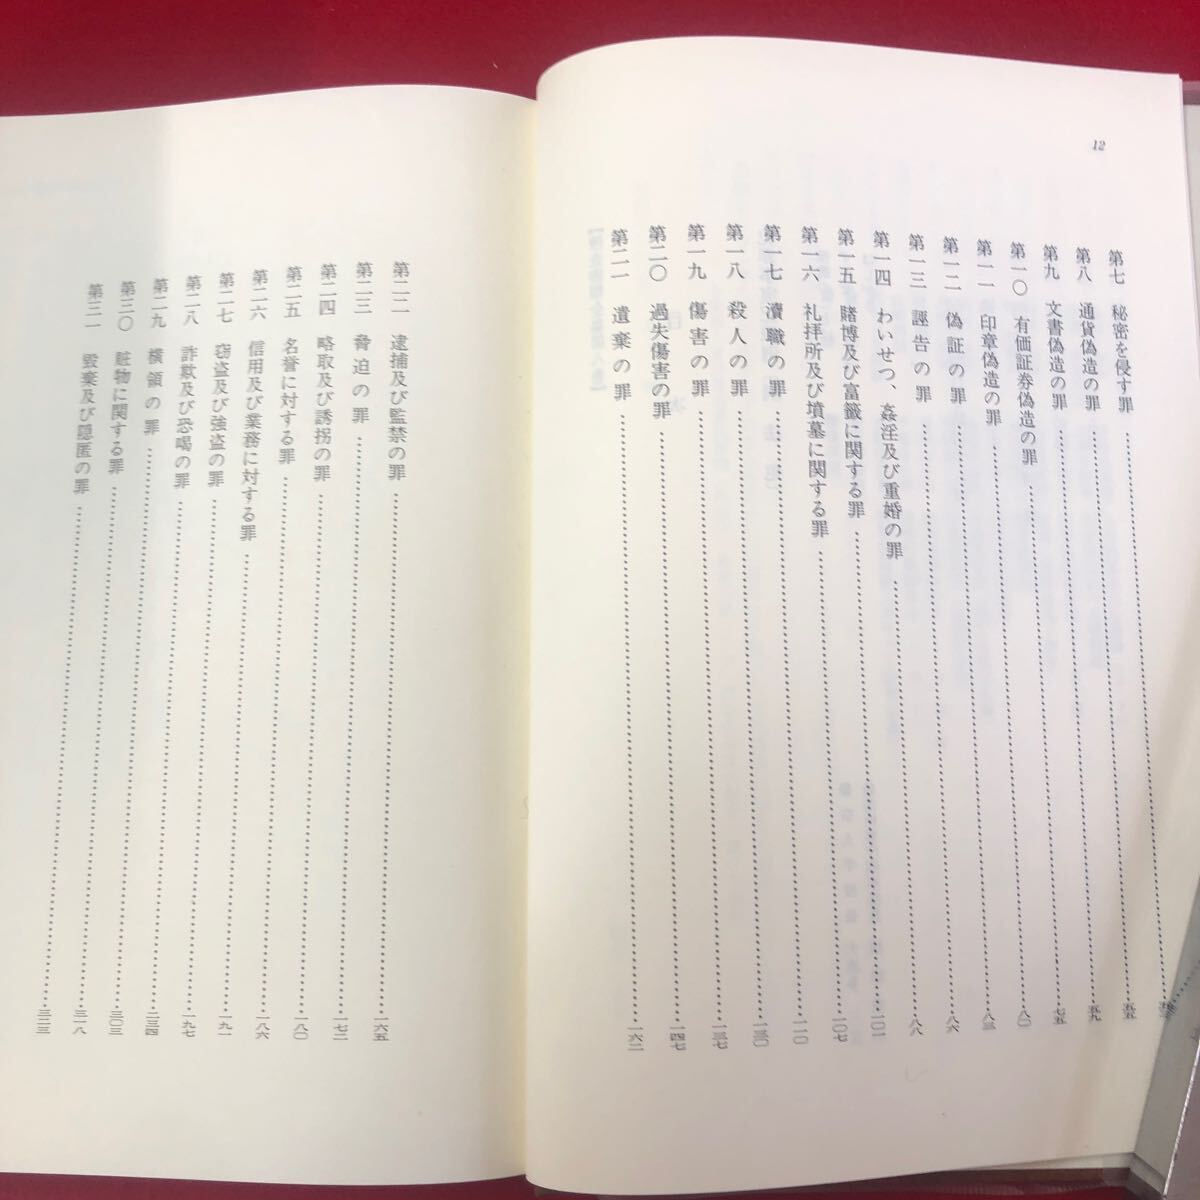 12
第七　秘密を侵す罪
第八　通貨偽造の罪……五五
第九　文書偽造の罪……五九
第一〇　有価証券偽造の罪……七五
第一一　印章偽造の罪……八〇
第一二　偽証の罪……八三
第一三　誣告の罪……八六
第一四　わいせつ、姦淫及び重婚の罪……八八
第一五　賭博及び富籤に関する罪……一〇一
第一六　礼拝所及び墳墓に関する罪……一〇七
第一七　瀆職の罪……一一〇
第一八　殺人の罪……一三〇
第一九　傷害の罪……一三七
第二〇　過失傷害の罪……一四七
第二一　遺棄の罪……一六二
第二二　逮捕及び監禁の罪……一六五
第二三　脅迫の罪……一七二
第二四　略取及び誘拐の罪……一八〇
第二五　名誉に対する罪……一八六
第二六　信用及び業務に対する罪……一九一
第二七　窃盗及び強盗の罪……一九七
第二八　詐欺及び恐喝の罪……二三四
第二九　横領の罪……三〇三
第三〇　贓物に関する罪……三一八
第三一　毀棄及び隠匿の罪……三二三